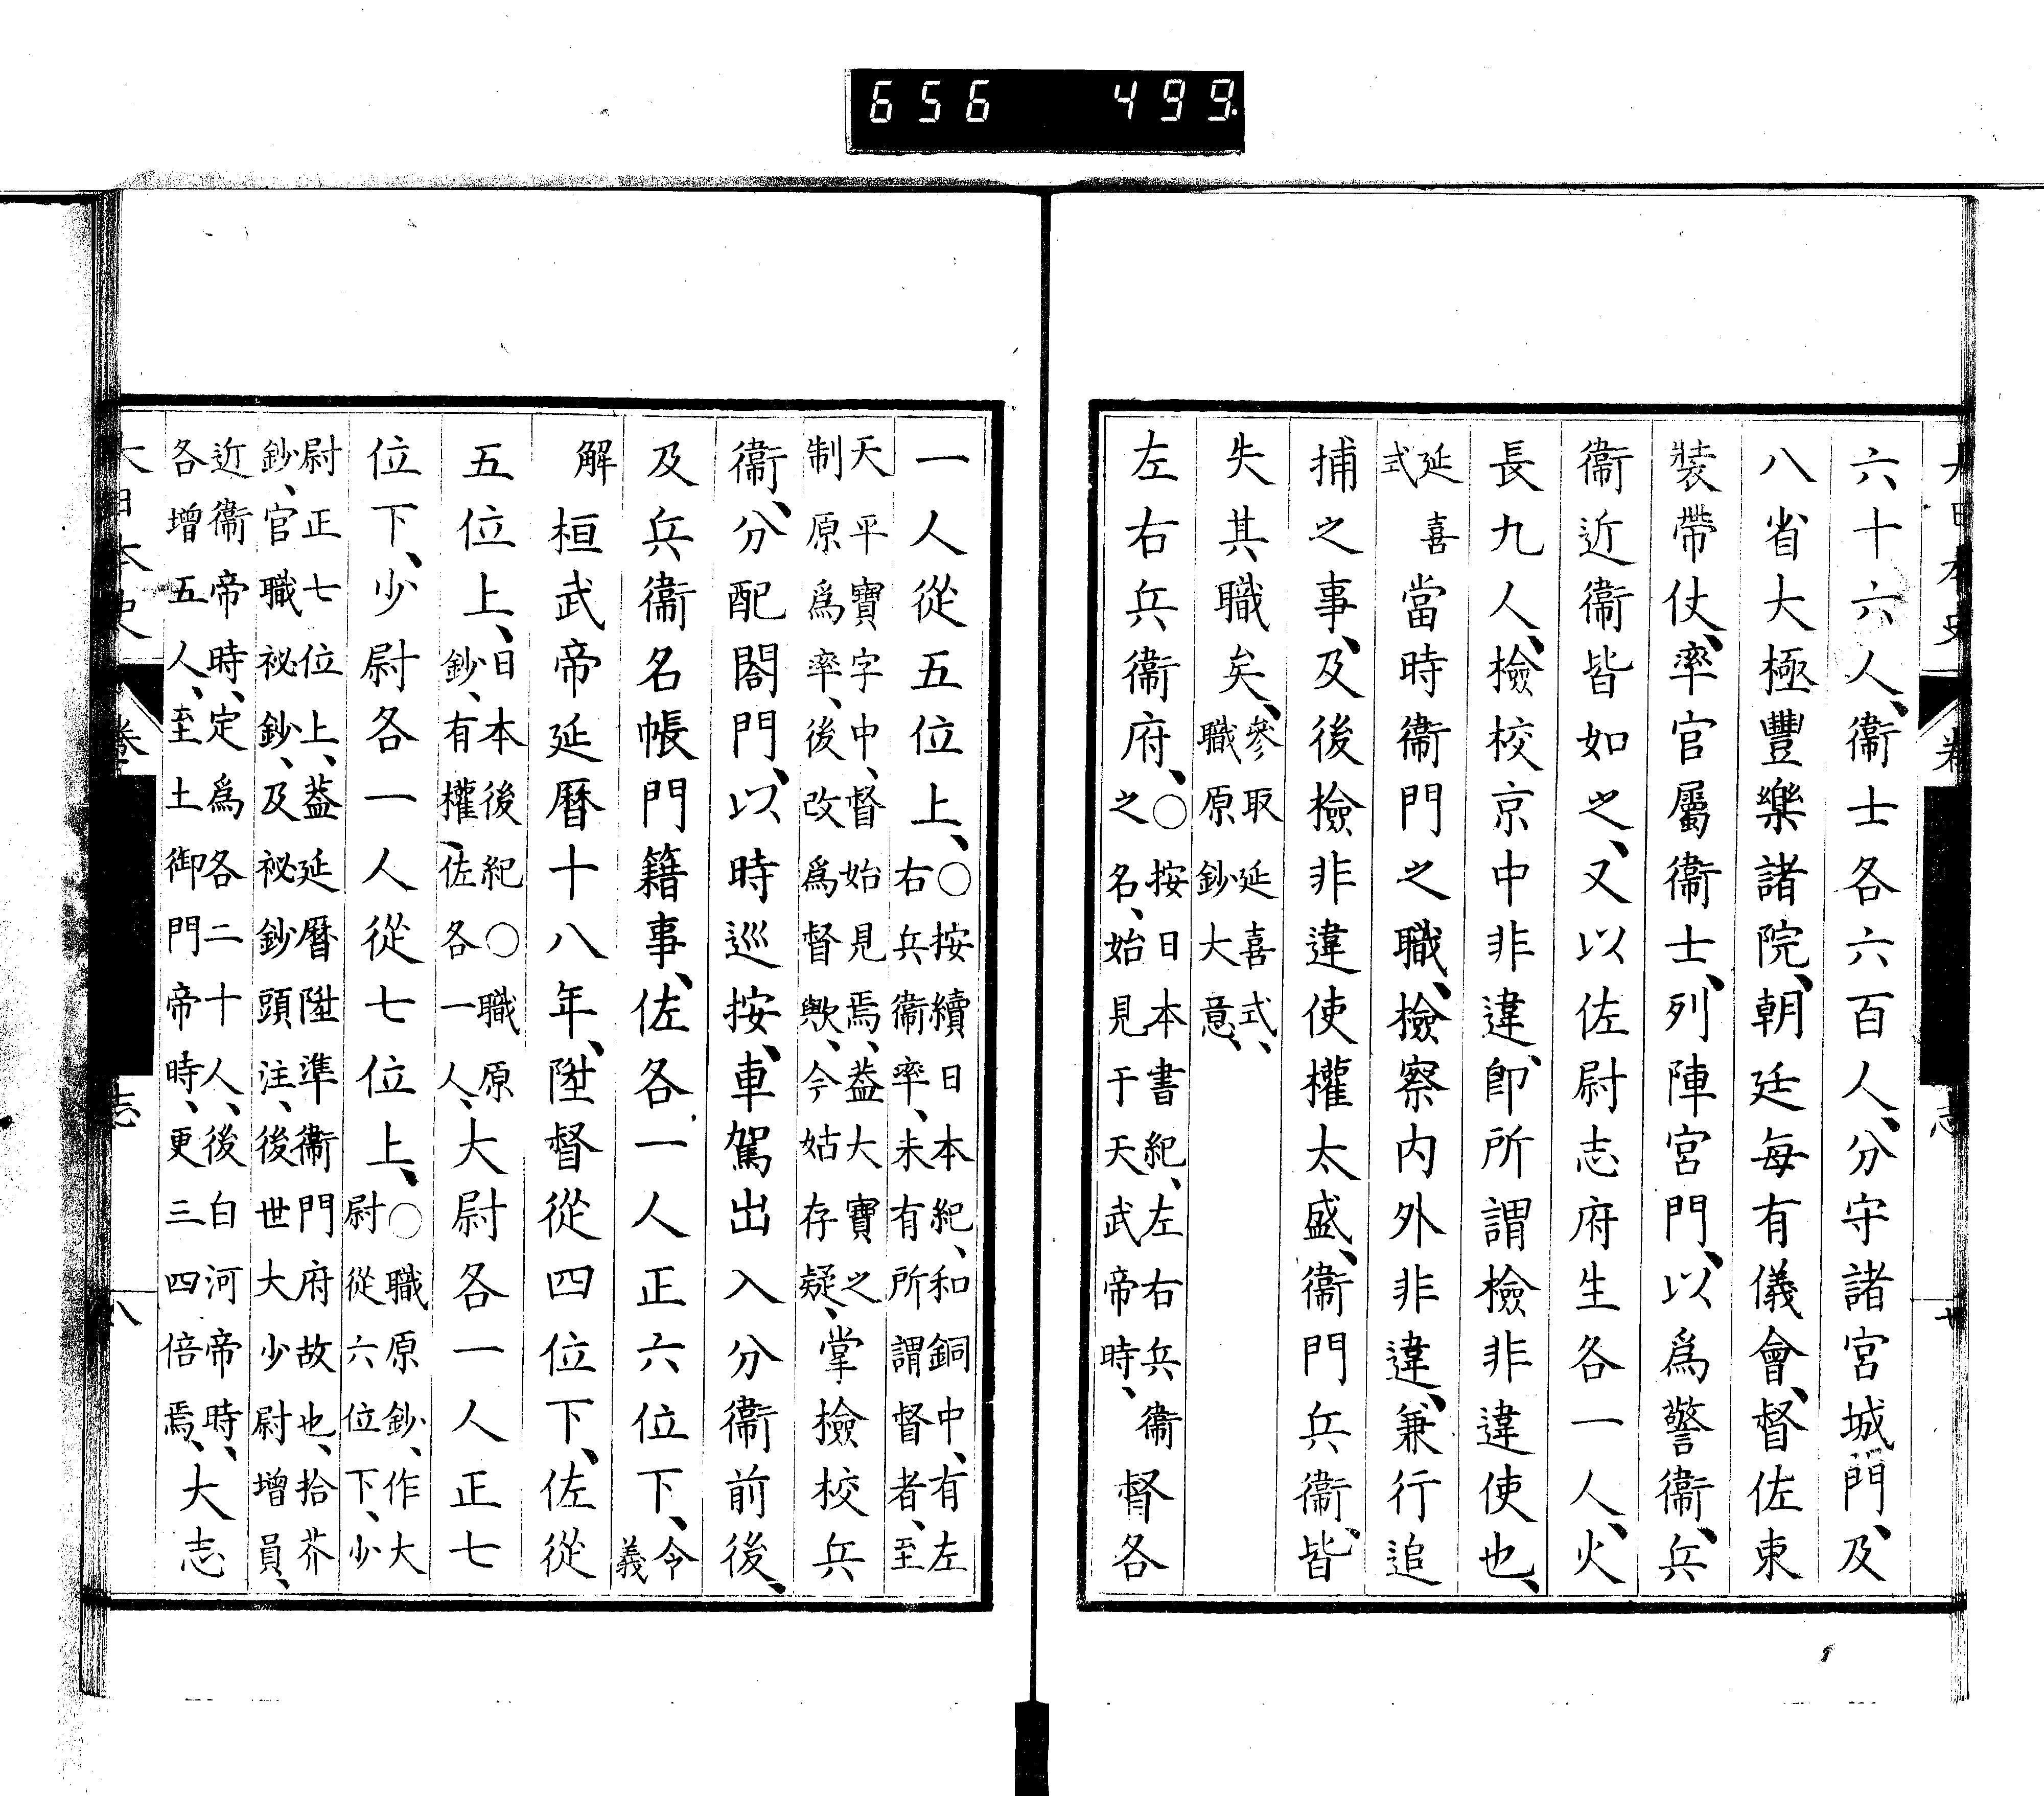 656 499.
六十六人、衞士各六百人、分守諸宮城門、及
八省大極豐樂諸院、朝廷每有儀會、督佐束
裝帶仗、率官屬衞士、列陣宮門、以爲警衞、兵
衞近衞皆如之、又以佐尉志府生各一人、火
長九人、檢校京中非違、卽所謂檢非違使也、
延喜式當時衞門之職、檢察内外非違、兼行追
捕之事、及後檢非違使權太盛、衞門兵衞、皆
失其職矣、參取延喜式、職原鈔大意、
左右兵衞府、○按日本書紀、左右兵衞之名、始見于天武帝時、督各
一人從五位上、○按續日本紀、和銅中、有左右兵衞率、未有所謂督者、至
天平寶字中、督始見焉、葢大寶之制原爲率、後改爲督歟、今姑存疑、掌檢校兵
衞、分配閤門、以時巡按、車駕出入分衞前後、
及兵衞名帳門籍事、佐各一人正六位下、令義
解桓武帝延曆十八年、陞督從四位下、佐從
五位上、日本後紀○職原鈔、有權佐各一人、大尉各一人正七
位下、少尉各一人從七位上、○職原鈔、作大尉從六位下、少
尉正七位上、葢延曆陞準衞門府故也、拾芥鈔、官職祕鈔、及祕鈔頭注、後世大少尉增員、
近衞帝時、定爲各二十人、後白河帝時、各增五人、至土御門帝時、更三四倍焉、大志
大日本史 卷 志 八